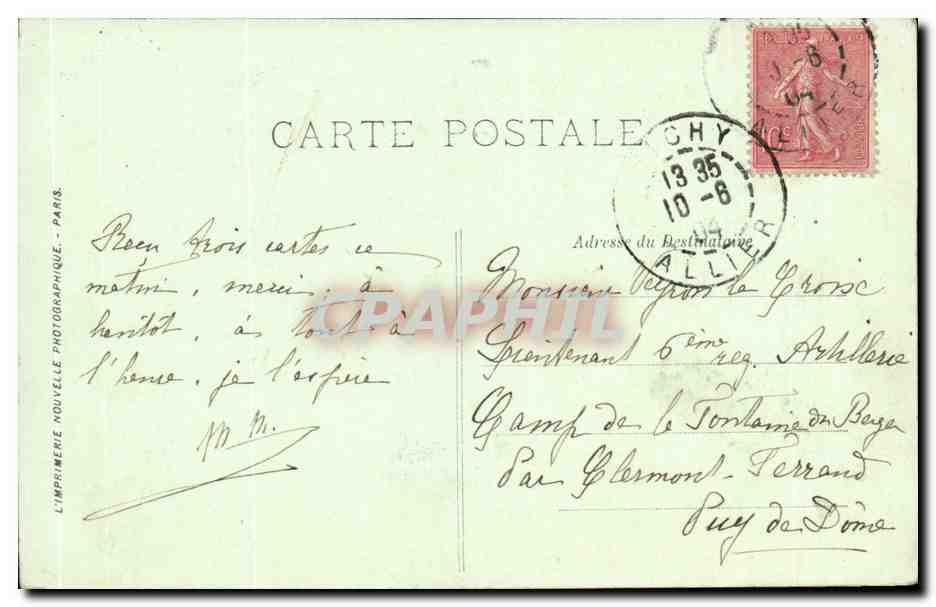 CARTE POSTALE
CHY
13 35
10 -6
04
ALLIER
Adresse du Destinataire
Reçu trois cartes ce
matin, merci, à
bientôt, à tout à
l'heure, je l'espère
M M.
Monsieur Peyron le Croix
Lieutenant 6ème reg. Artillerie
Camp de la Fontaine du Berger
Par Clermont-Ferrand
Puy de Dôme
L'IMPRIMERIE NOUVELLE PHOTOGRAPHIQUE. - PARIS.
CPAPHIL